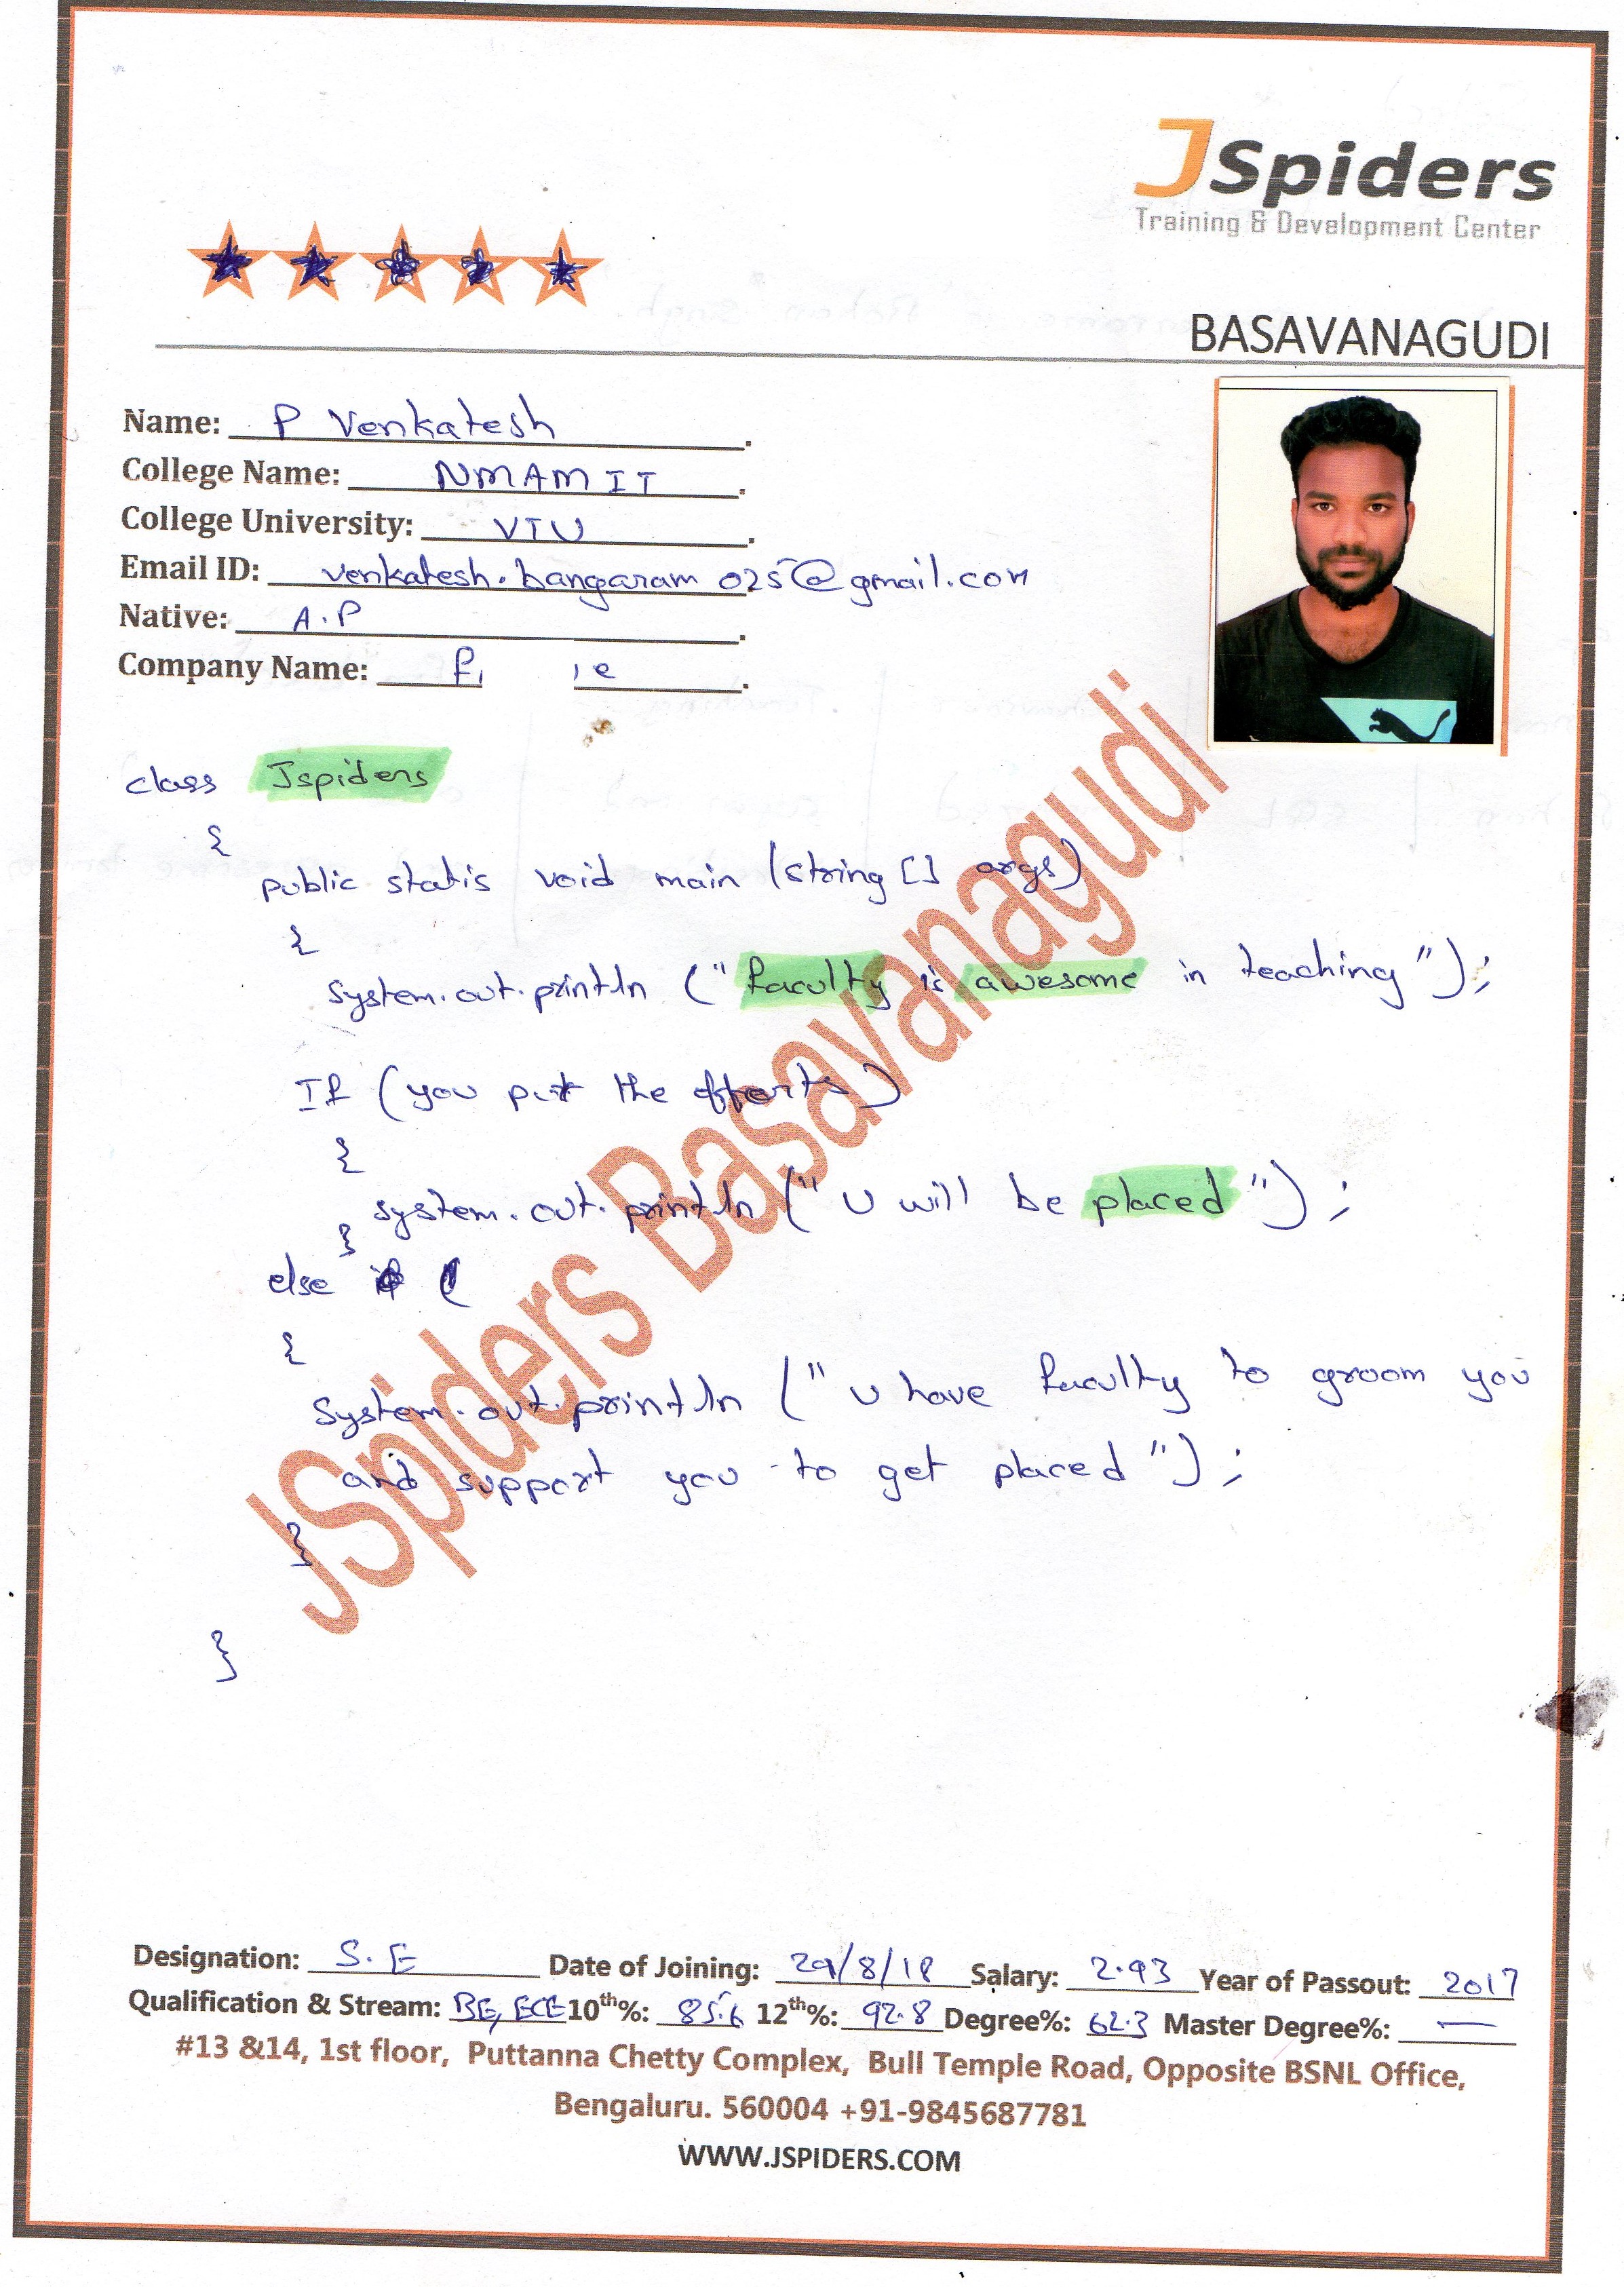 JSpiders
Training & Development Center
BASAVANAGUDI
Name: P Venkatesh.
College Name: NMAMIT.
College University: VTU.
Email ID: venkatesh.bangaram025@gmail.com
Native: A.P.
Company Name:
class Jspiders
{
public statis void main (string [] args)
{
system.out.println ("faculty is awesome in teaching");
If (you put the efforts)
{
system.out.println ("U will be placed");
}
else
{
system.out.println ("u have faculty to groom you
and support you to get placed");
}
}
JSpiders Basavanagudi
Designation: S.E Date of Joining: 29/8/18 Salary: 2.93 Year of Passout: 2017
Qualification & Stream: BE, ECE 10th%: 85.6 12th%: 92.8 Degree%: 62.3 Master Degree%: —
#13 &14, 1st floor, Puttanna Chetty Complex, Bull Temple Road, Opposite BSNL Office,
Bengaluru. 560004 +91-9845687781
WWW.JSPIDERS.COM